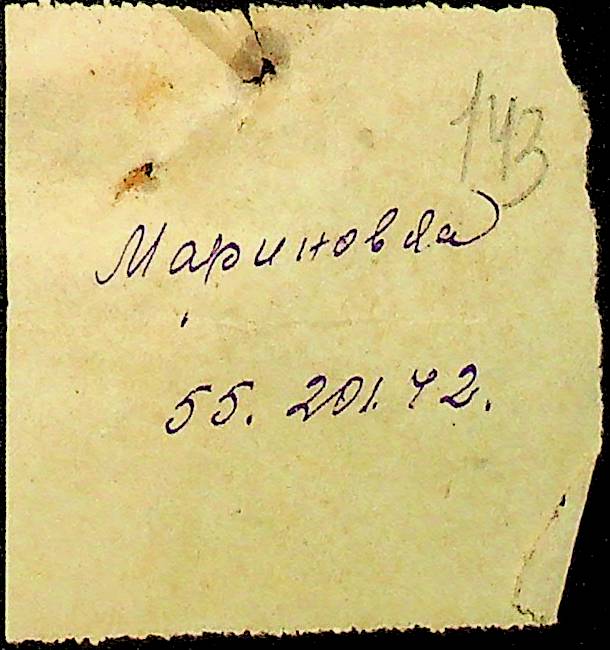 143
Мариновда
55. 201. 42.